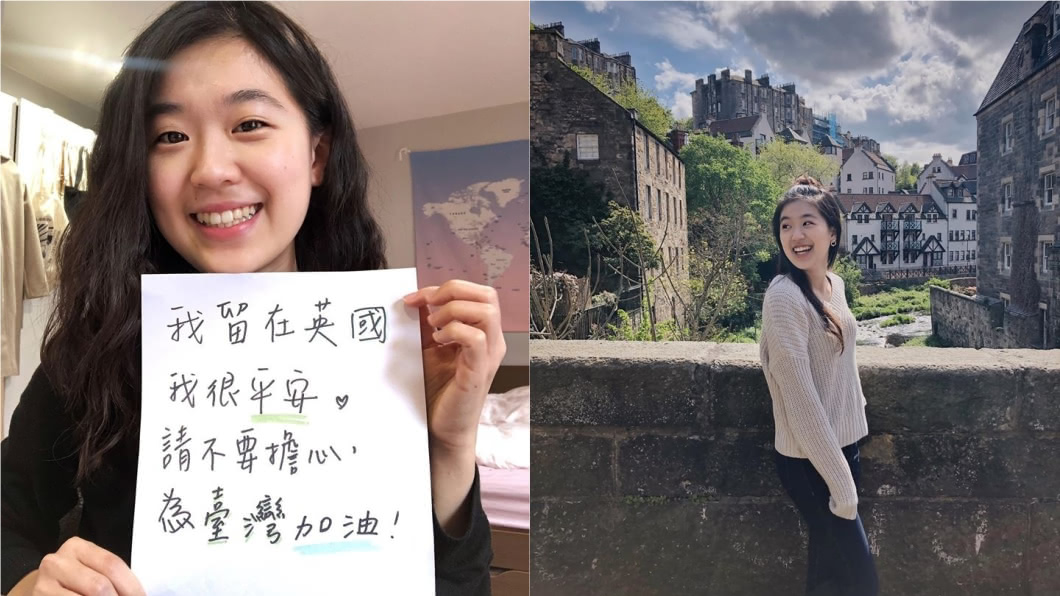 我留在英國
我很平安。♡
請不要擔心，
為臺灣加油！